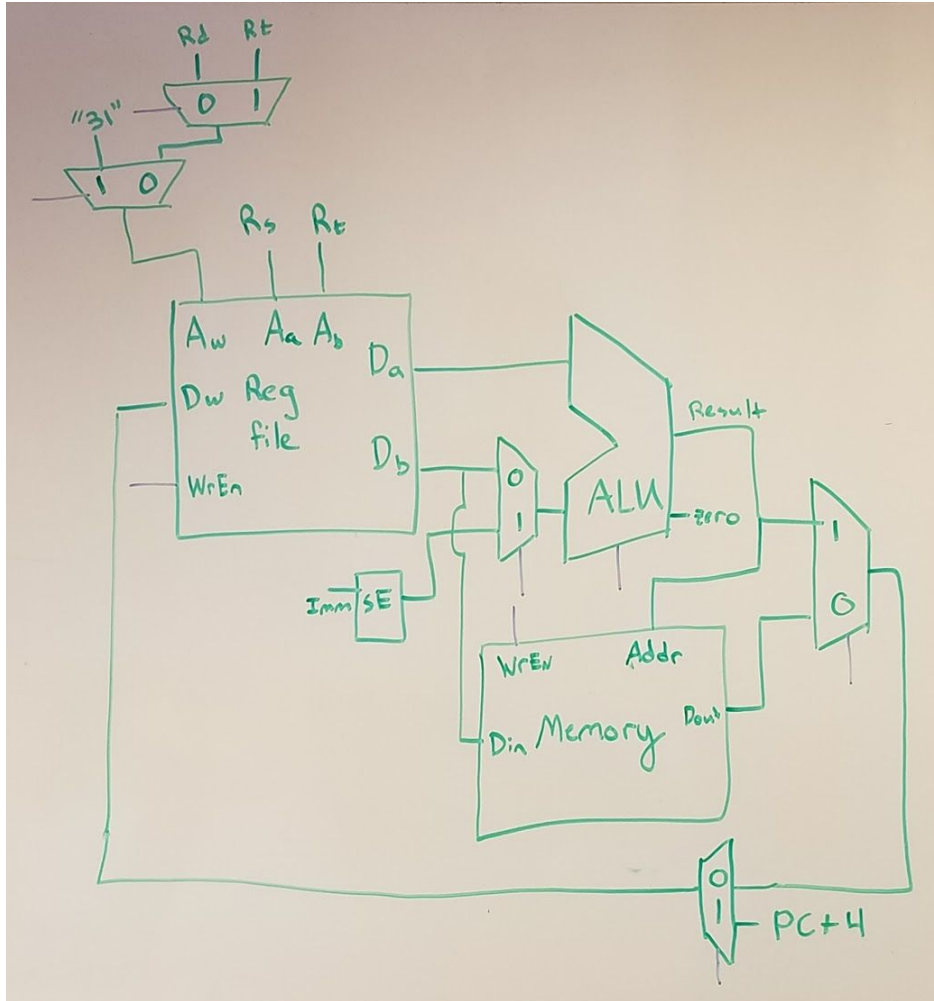 Rd Rt
0 1
"31"
1 0
Rs Rt
Aw Aa Ab
Da
Dw Reg
file
Db
WrEn
0
1
ALU
Result
zero
1
0
Imm SE
WrEn Addr
Din Memory Dout
0
1
PC+4